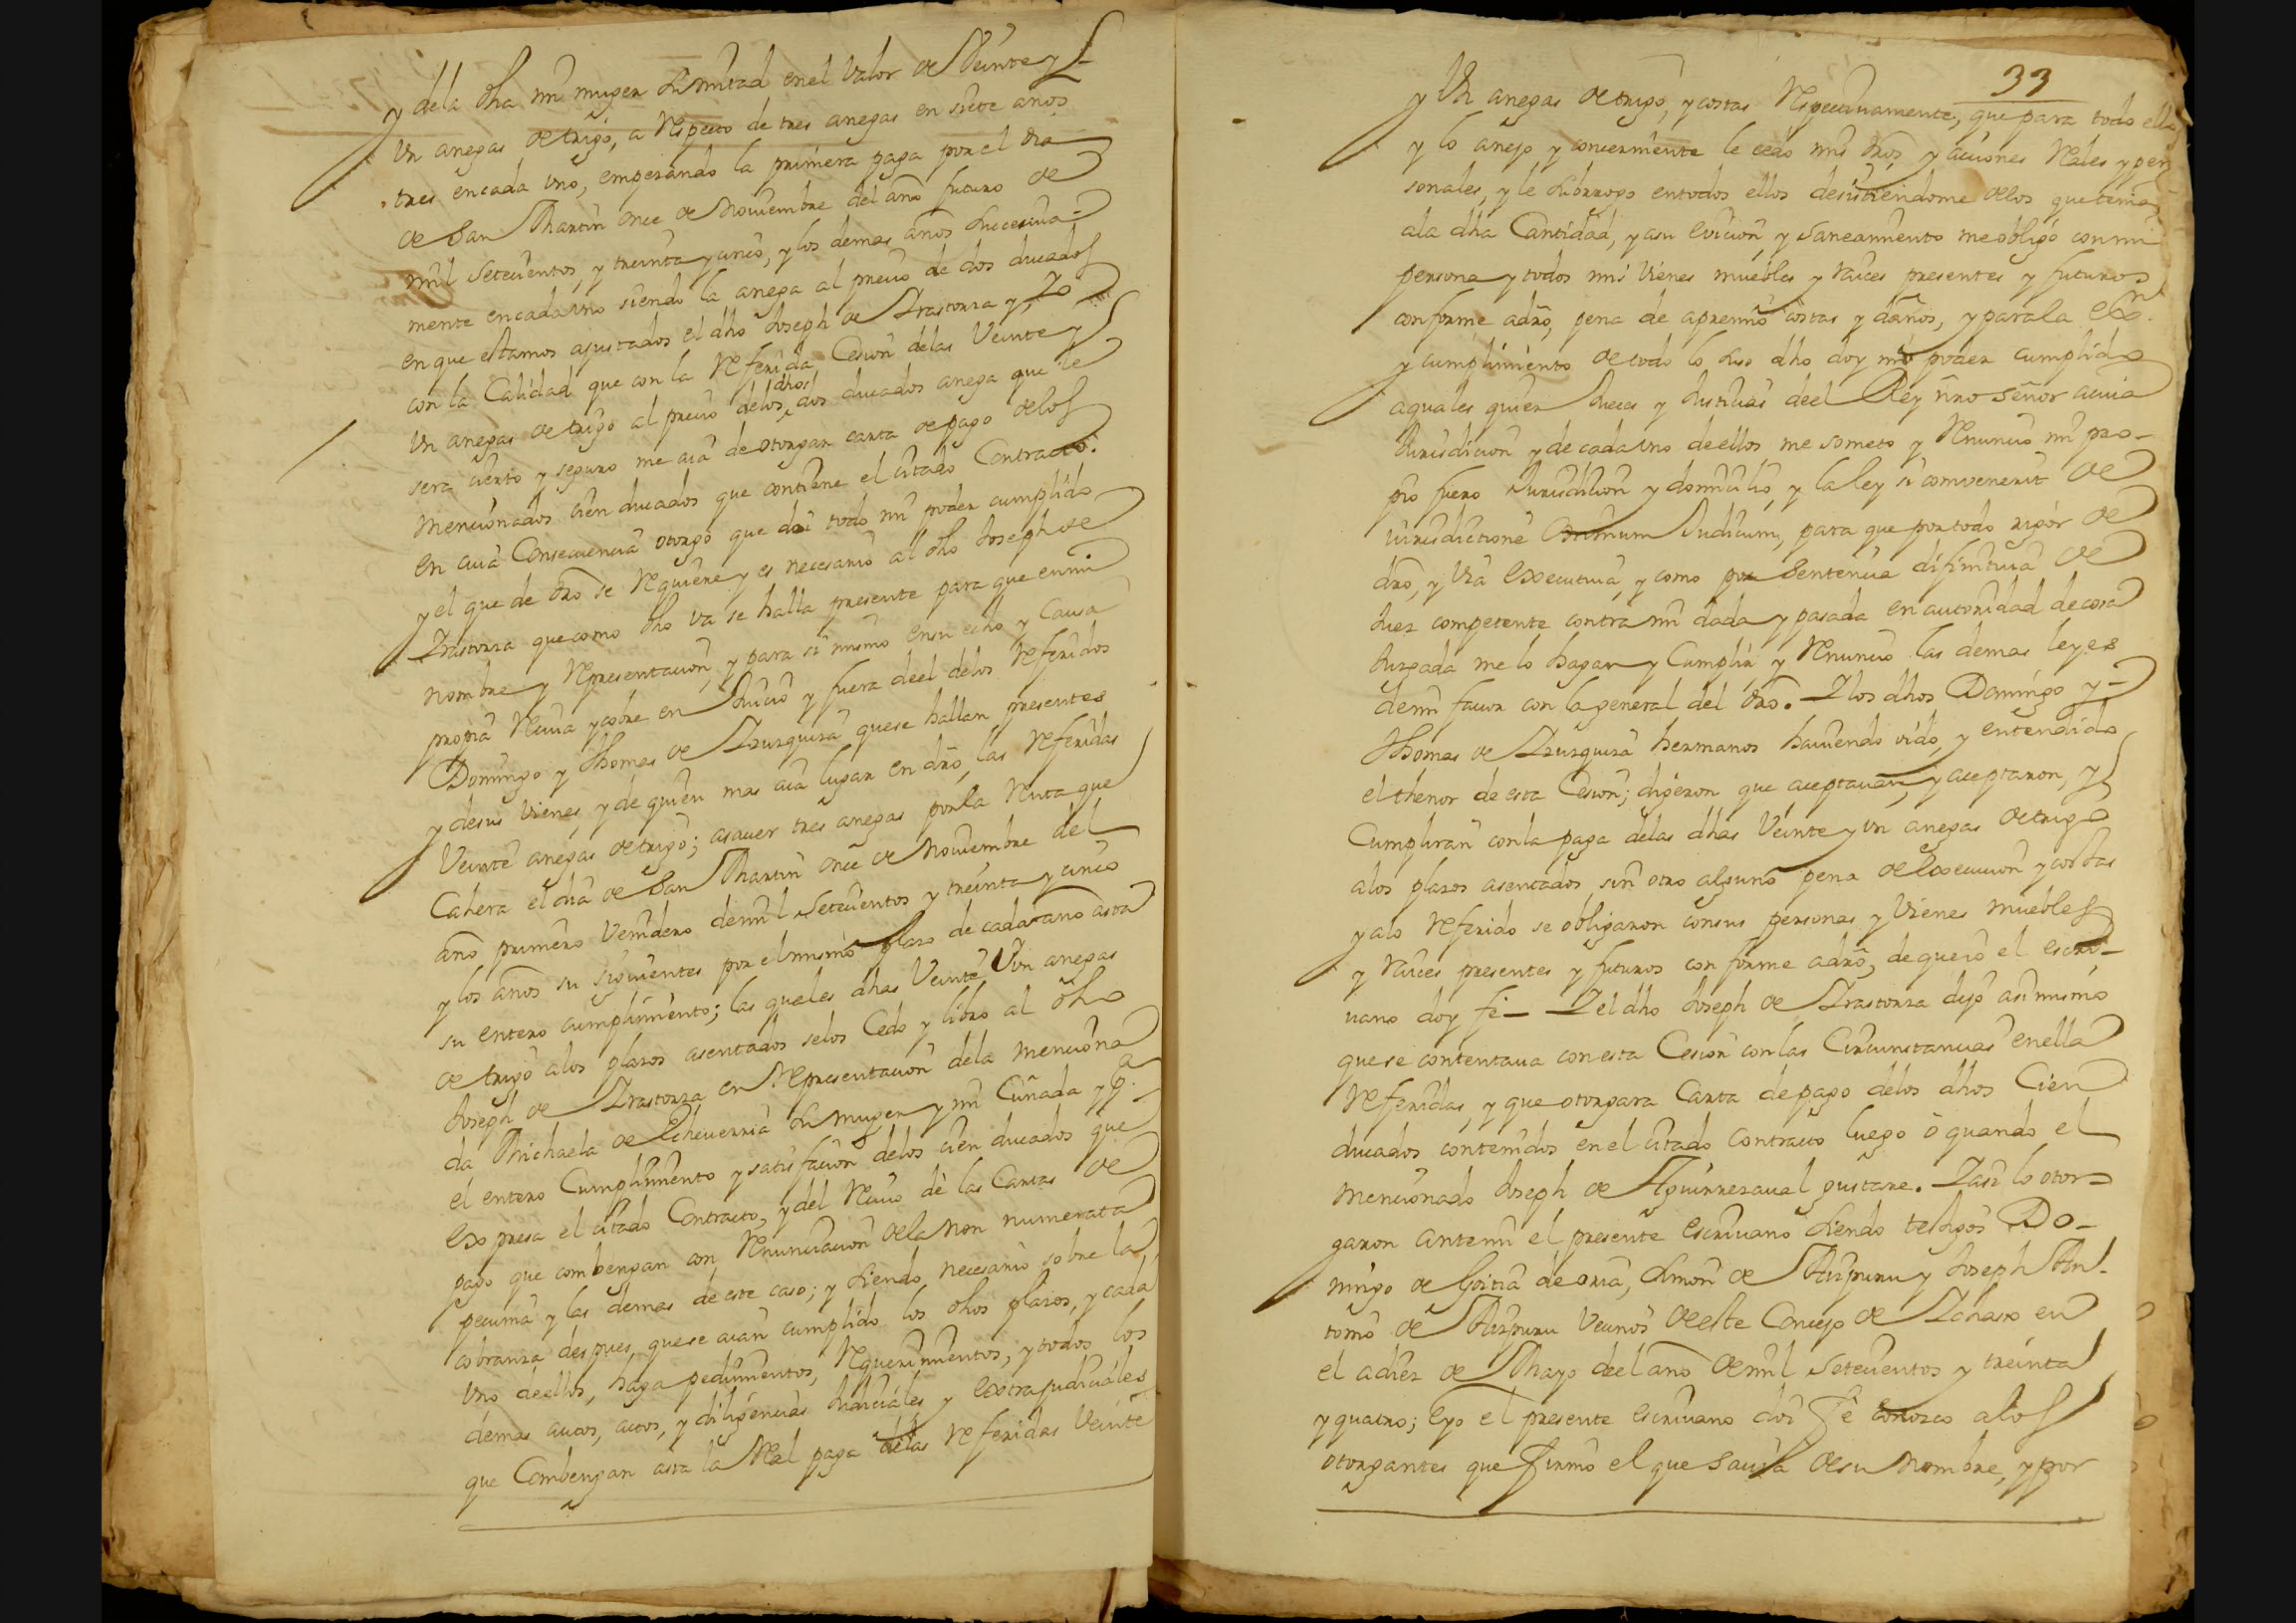 y dela dha mi muger su mitad en el valor de Veinte y
un anegas de trigo, a respecto de tres anegas en siete años
tres en cada uno, empezando la primera paga por el dia
de San Martin once de Noviembre del año futuro de
mil setecientos, y treinta y cinco, y los demas años succesiva-
mente en cada uno siendo la anega al precio de dos ducados
en que estamos ajustados el dho Joseph de Irastorza y, Yo
con la Calidad que con la referida Cesion delas Veinte y
un anegas de trigo al precio delos dhos dos ducados anega que le
sera cierto y seguro me aia de otorgar carta de pago delos
mencionados cien ducados que contiene el citado Contracto.
en cuia Consecuencia otorgo que doi todo mi poder cumplido
y el que de dro se requiere y es necesario al dho Joseph de
Irastorza que como dho va se halla presente para que en mi
nombre y representacion, y para si mismo en su echo y Causa
propia reciva y cobre en Juicio y fuera deel delos referidos
Domingo y Thomas de Izurquiza que se hallan presentes
y de sus vienes, y de quien mas aia lugar en dro, las referidas
Veinte anegas de trigo; asaver tres anegas por la renta que
Cahera el dia de San Martin once de Noviembre del
año primero venidero de mil setecientos y treinta y cinco
y los años su siguientes por el mismo plazo de cada año asta
su entero cumplimiento; las quales dhas Veinte y un anegas
de trigo alos plazos asentados selos Cedo y libro al dho
Joseph de Irastorza en representacion dela menciona
da Michaela de Echeverria su muger y mi Cuñada y pa.
el entero Cumplimiento y satisfacion delos cien ducados que
expresa el citado Contracto, y del recivo dè las Cartas de
pago que combengan con renunciacion dela non numerata
pecunia y las demas de este caso; y siendo necesario sobre la
cobranza despues, que se aian cumplido los dhos plazos, y cada
uno deellos, haga pedimientos, requerimientos, y todos los
demas autos, actos, y diligencias Judiciáles y extrajudiciáles
que Combengan asta la real paga delas referidas Veinte
33
y Un anegas de trigo, y costas respectivamente; que para todo ello
y lo anejo y concerniente le cedo mis dros y aciones reales y per
sonales, y le subrrogo en todos ellos desistiendome delos que tenia
ala dha Cantidad, y asu evicion y saneamiento me obligo con mi
persona y todos mis vienes muebles y raices presentes y futuros
conforme adro, pena de apremio costas y daños, y para la exon.
y cumplimiento de todo lo suso dho doy mi poder cumplido
a quales quier Jueces y Justicias deel Rey nro señor acuia
Jurisdicion y de cada uno deellos me someto y renuncio mi pro-
pio fuero Jurisdicion y domicilio, y la ley si convenerit de
iurisdictione Omnium Judicum, para que por todo rigor de
dro, y via executiva, y como por Sentencia difinitiva de
Juez competente contra mi dada y pasada en autoridad de cosa
Juzgada me lo hagan y Cumplir y renuncio las demas leyes
de mi favor con la general del dro. Y los dhos Domingo y
Thomas de Izurquiza hermanos haviendo oido, y entendido
el thenor de esta Cesion; dixeron que aceptavan, y aceptaron, y
Cumpliran con la paga delas dhas Veinte y un anegas de trigo
alos plazos asentados sin otro alguno pena de execucion y costas
y alo referido se obligaron con sus personas y vienes muebles
y raices presentes y futuros conforme adro, de que io el escri-
vano doy fè - Y el dho Joseph de Irastorza dijo asi mismo
que se contentava con esta Cesion con las Circunstancias enella
referidas, y que otorgara Carta de pago delos dhos Cien
ducados contenidos en el citado contracto luego ò quando el
mencionado Joseph de Aguirrezaval gustare. Y asi lo otor-
garon ante mi el presente escrivano siendo testigos Do-
mingo de Goitia de oria, Simon de Aizpuru y Joseph An-
tonio de Aizpuru Vecinos de este Concejo de Ichaso en
el adiez de Mayo deel año de mil setecientos y treinta
y quatro; e yo el presente escrivano doi Fê conozco alos
otorgantes que Firmô el que savia de su nombre, y por